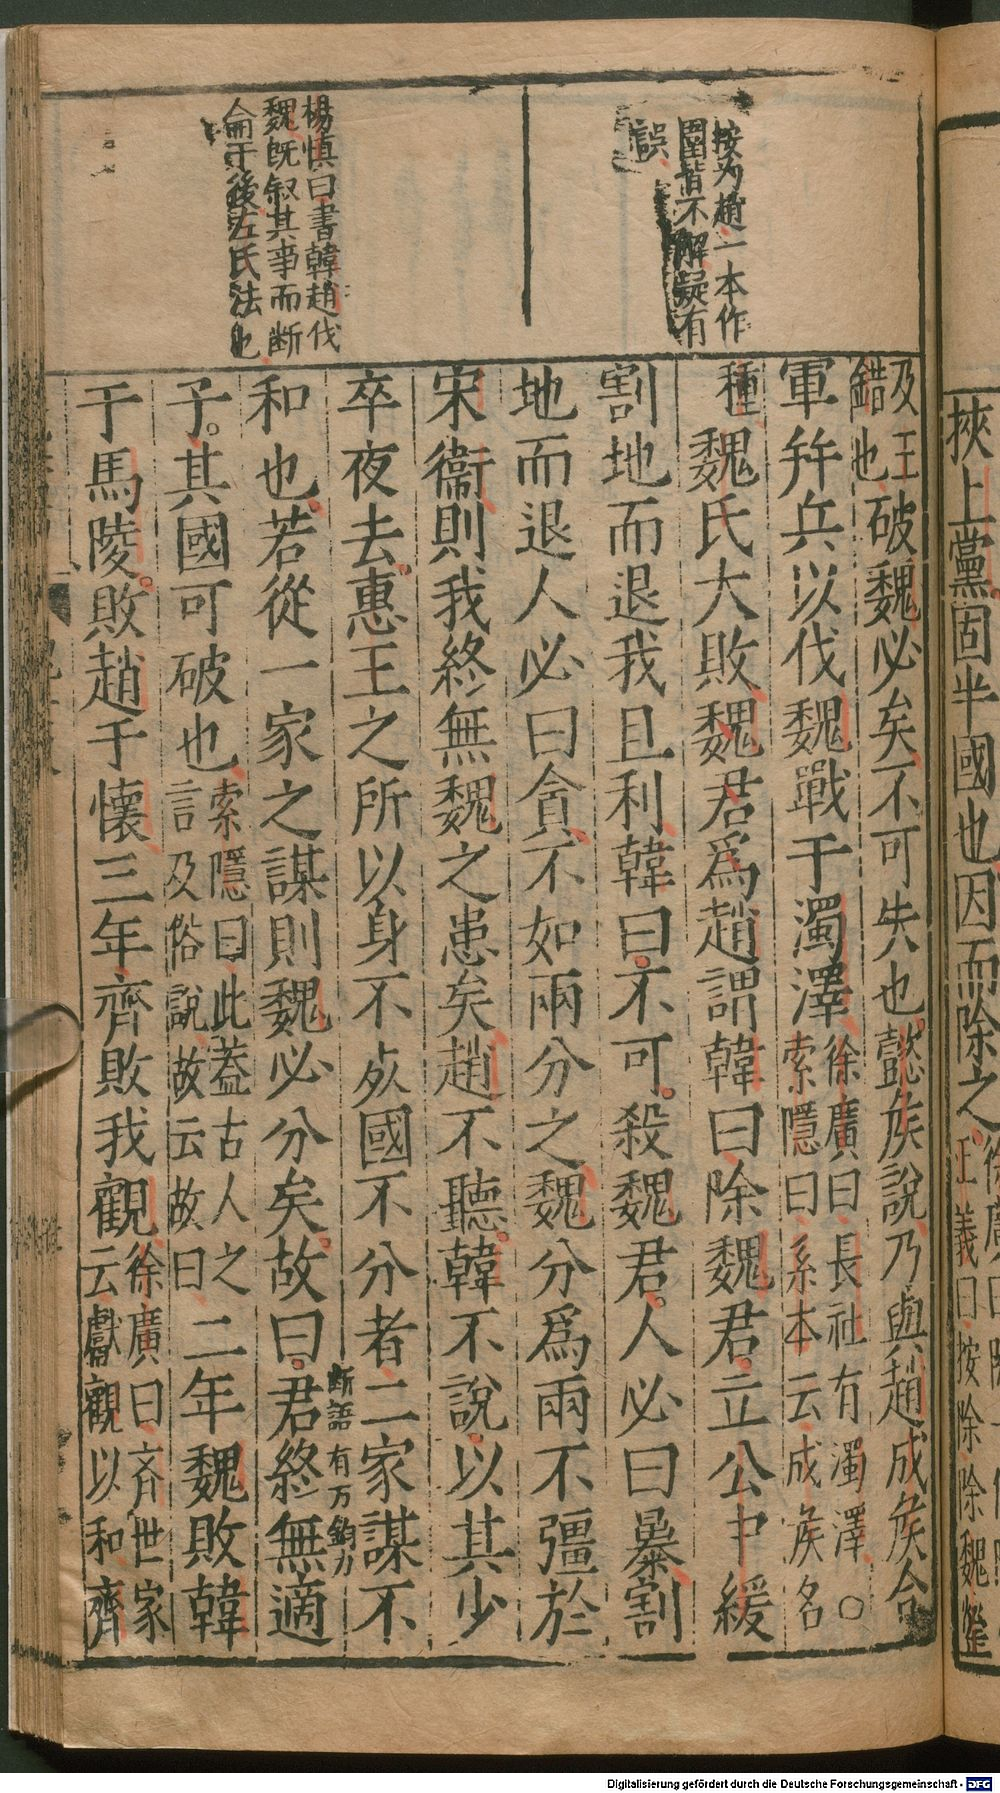 挾上黨固半國也因而除之
按為趙一本作
圍皆不解疑有
誤
楊慎曰書韓趙伐
魏既叙其事而斷
侖于後左氏法也
及王
錯也
破魏必矣不可失也懿矦說乃與趙成矦合
軍并兵以伐魏戰于濁澤
徐廣曰長社有濁澤○
索隱曰系本云成矦名
種
魏氏大敗魏君爲趙謂韓曰除魏君立公中緩
割地而退我且利韓曰不可殺魏君人必曰暴割
地而退人必曰貪不如兩分之魏分爲兩不彊於
宋衞則我終無魏之患矣趙不聽韓不說以其少
卒夜去惠王之所以身不死國不分者二家謀不
斷語有万鈞力
和也若從一家之謀則魏必分矣故曰君終無適
子其國可破也
索隱曰此葢古人之
言及俗說故云故曰
二年魏敗韓
于馬陵敗趙于懷三年齊敗我觀
徐廣曰齐世家
云獻觀以和齊
Digitalisierung gefördert durch die Deutsche Forschungsgemeinschaft - DFG